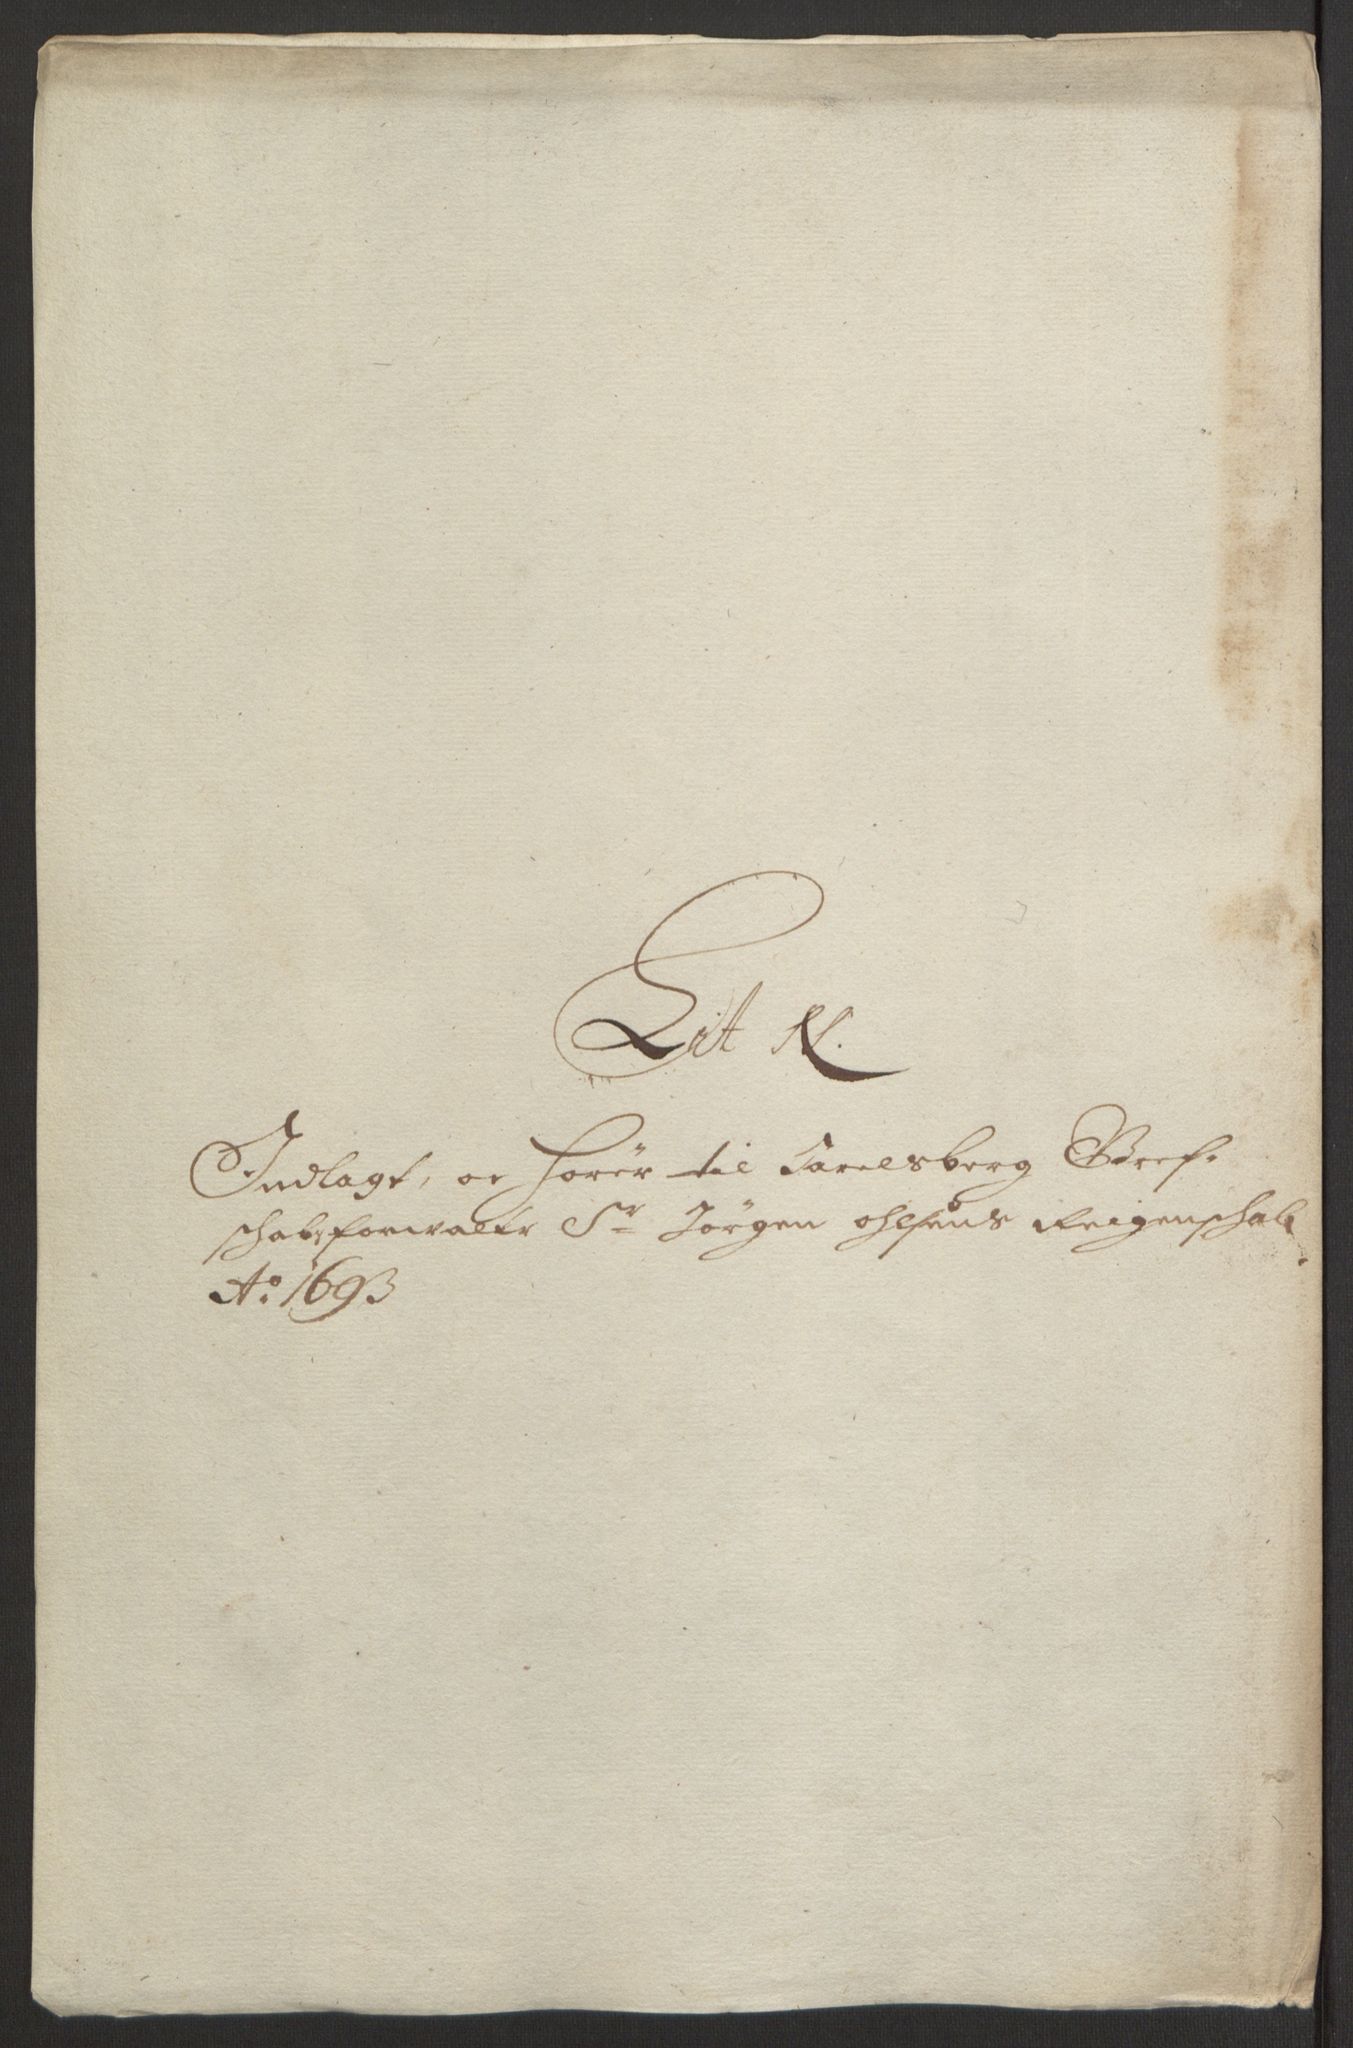 Lit N.
Indlagt, oc hører til Jarlsberg Gref-
schabsforvalter Sr Jørgen ohlsens Regenschab
Ao 1693